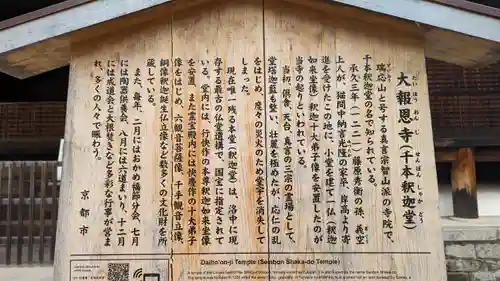 大報恩寺(千本釈迦堂)
だいほうおんじ せんぼんしゃかどう
瑞応山と号する真言宗智山派の寺院で、
千本釈迦堂の名で知られている。
承久三年(一二二一)藤原秀衡の孫、義空
上人が、猫間中納言光隆の家卒、岸高より寄
進を受けたこの地に、小堂を建て一仏(釈迦
如来坐像)釈迦十大弟子像を安置したのが
当寺の起りといわれている。
当初、倶舎、天台、真言の三宗の霊場として、
堂塔伽藍も整い、壮麗を極めたが、応仁の乱
をはじめ、度々の災火のため堂宇を消失して
しまった。
現在唯一残る本堂(釈迦堂)は、洛中に現
存する最古の仏堂遺構で、国宝に指定されて
いる。堂内には、行快作の本尊釈迦如来坐像
を安置、また霊宝殿内には快慶作の十大弟子
像をはじめ、六観音菩薩像、千手観音立像、
銅像釈迦誕生仏立像など数多くの文化財を所
蔵している。
また、毎年、二月にはおかめ福節分会、七月
には陶器供養会、八月には六道まいり、十二月
には成道会と大根焚きなど多彩な行事が営ま
れ、多くの人々で賑わう。
京都市
Daiho'on-ji Temple (Senbon Shaka-do Temple)